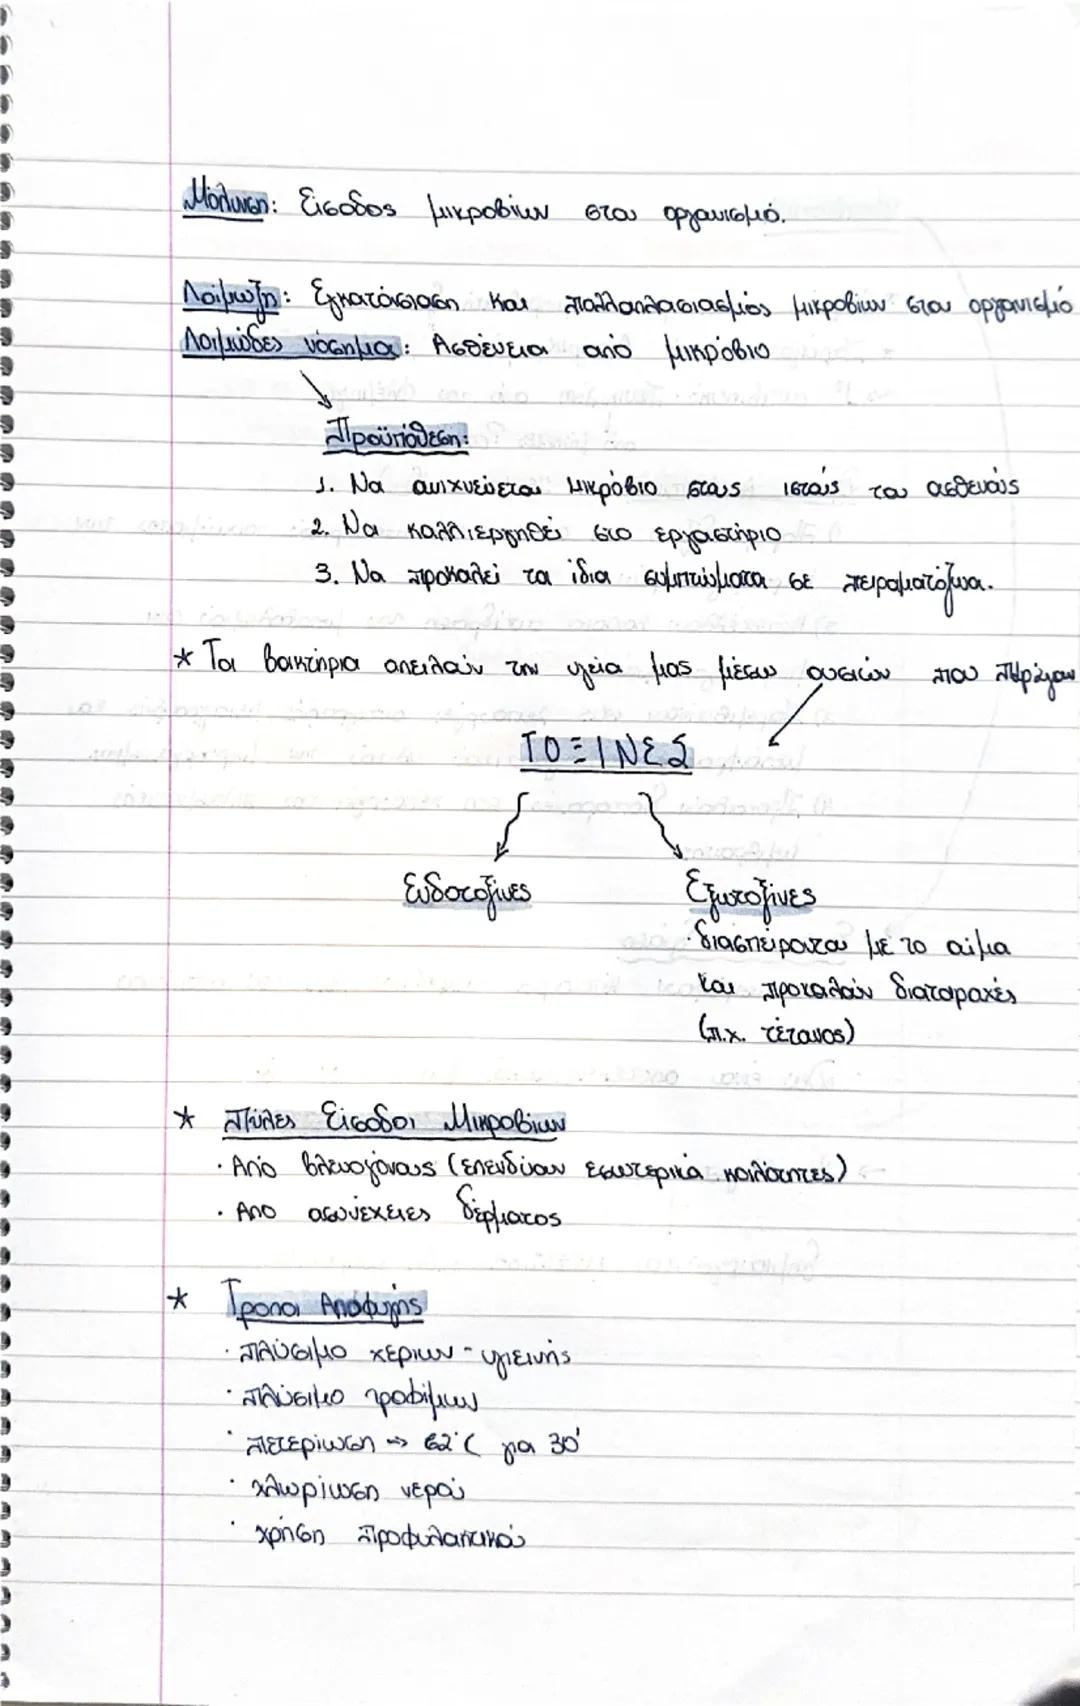 Μόλυνση: Είσοδος μικροβίων στον οργανισμό.
Λοίμωξη: Εγκατάσταση και πολλαπλασιασμός μικροβίων στον οργανισμό
Λοιμώδες νόσημα: Ασθένεια από μικρόβιο
Προϋπόθεση:
1. Να ανιχνεύεται μικρόβιο στους ιστούς του ασθενούς
2. Να καλλιεργηθεί στο εργαστήριο
3. Να προκαλεί τα ίδια συμπτώματα σε πειραματόζωα.
* Τα βακτήρια απειλούν την υγεία μας μέσω ουσιών που παράγουν
ΤΟΞΙΝΕΣ
Ενδοτοξίνες Εξωτοξίνες
· διασπείρονται με το αίμα
και προκαλούν διαταραχές
(π.χ. τέτανος)
* Πύλες Είσοδοι Μικροβίων
· Από βλενογόνους (επενδύουν εσωτερικά κοιλότητες)
· Απο ασυνέχειες δέρματος
* Τροποι Αποφυγής
· πλύσιμο χεριων - υγιεινής
· πλύσιμο τροφίμων
· παστερίωση → 62°C για 30'
· χλωρίωση νερού
· χρήση προφυλακτικού